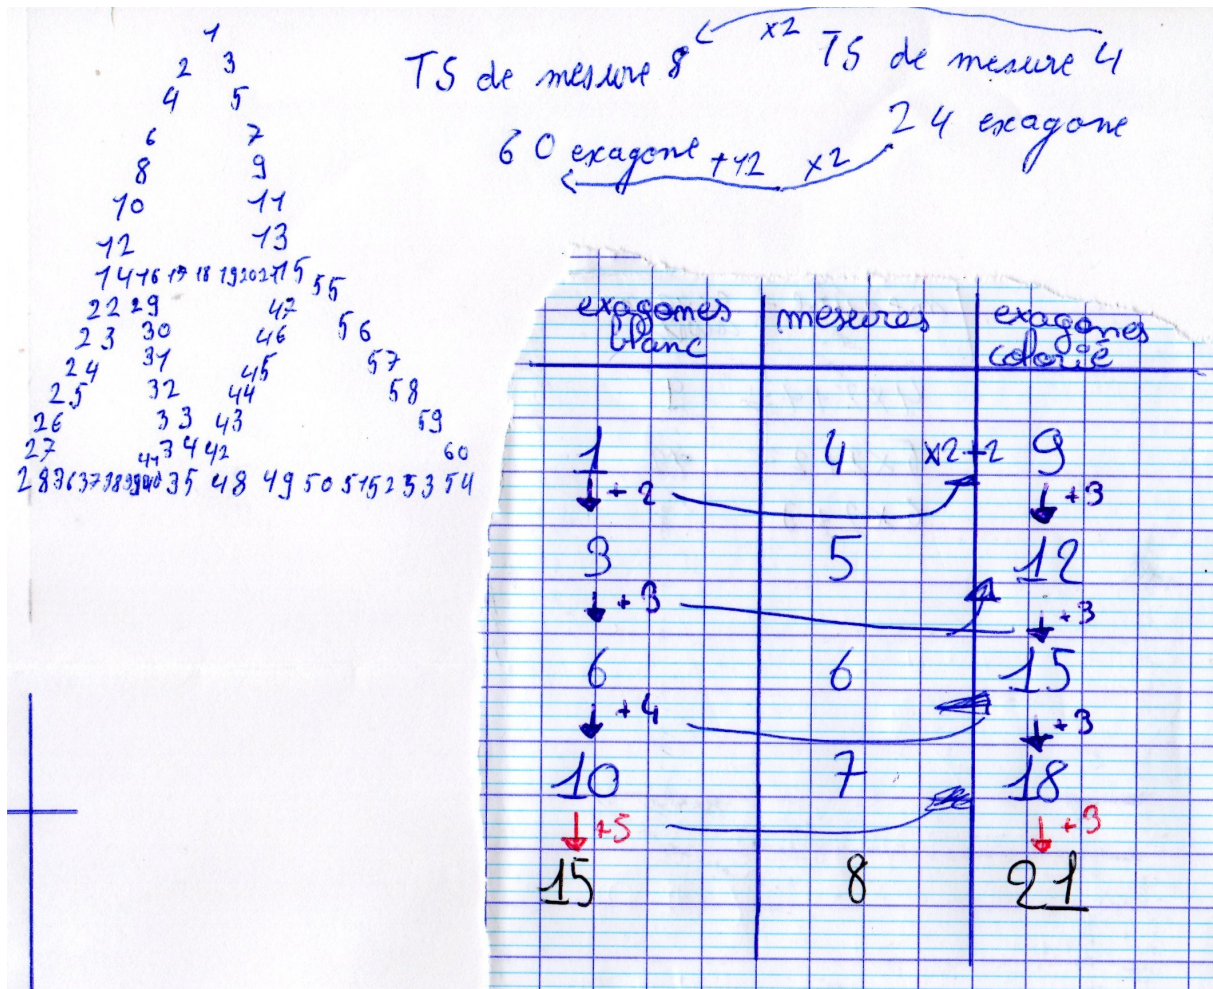 1
2 3
4 5
6 7
8 9
10 11
12 13
14 16 17 18 19 20 21 15 55
22 29 47
23 30 46 56
24 31 45 57
25 32 44 58
26 33 43 59
27 34 42 60
41
28 36 37 38 39 40 35 48 49 50 51 52 53 54
TS de mesure 8 x2 TS de mesure 4
24 exagone
60 exagone +12 x2
exagones blanc mesures exagones colorié
1 4 x2-2 9
+2 +3
3 5 12
+3 +3
6 6 15
+4 +3
10 7 18
+5 +3
15 8 21